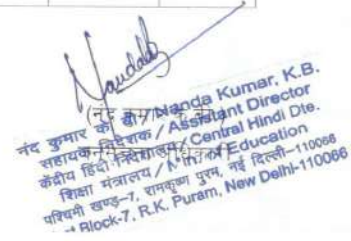 (नंद कुमार के. बी.)
नंद कुमार के. बी. / Nanda Kumar, K.B.
सहायक निदेशक / Assistant Director
केंद्रीय हिंदी निदेशालय / Central Hindi Dte.
शिक्षा मंत्रालय / of Education
पश्चिमी खण्ड-7, रामकृष्ण पुरम, नई दिल्ली-110066
Block-7, R.K. Puram, New Delhi-110066